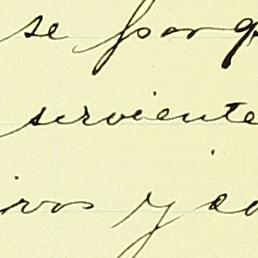 se porq
serviente
ivos y ca